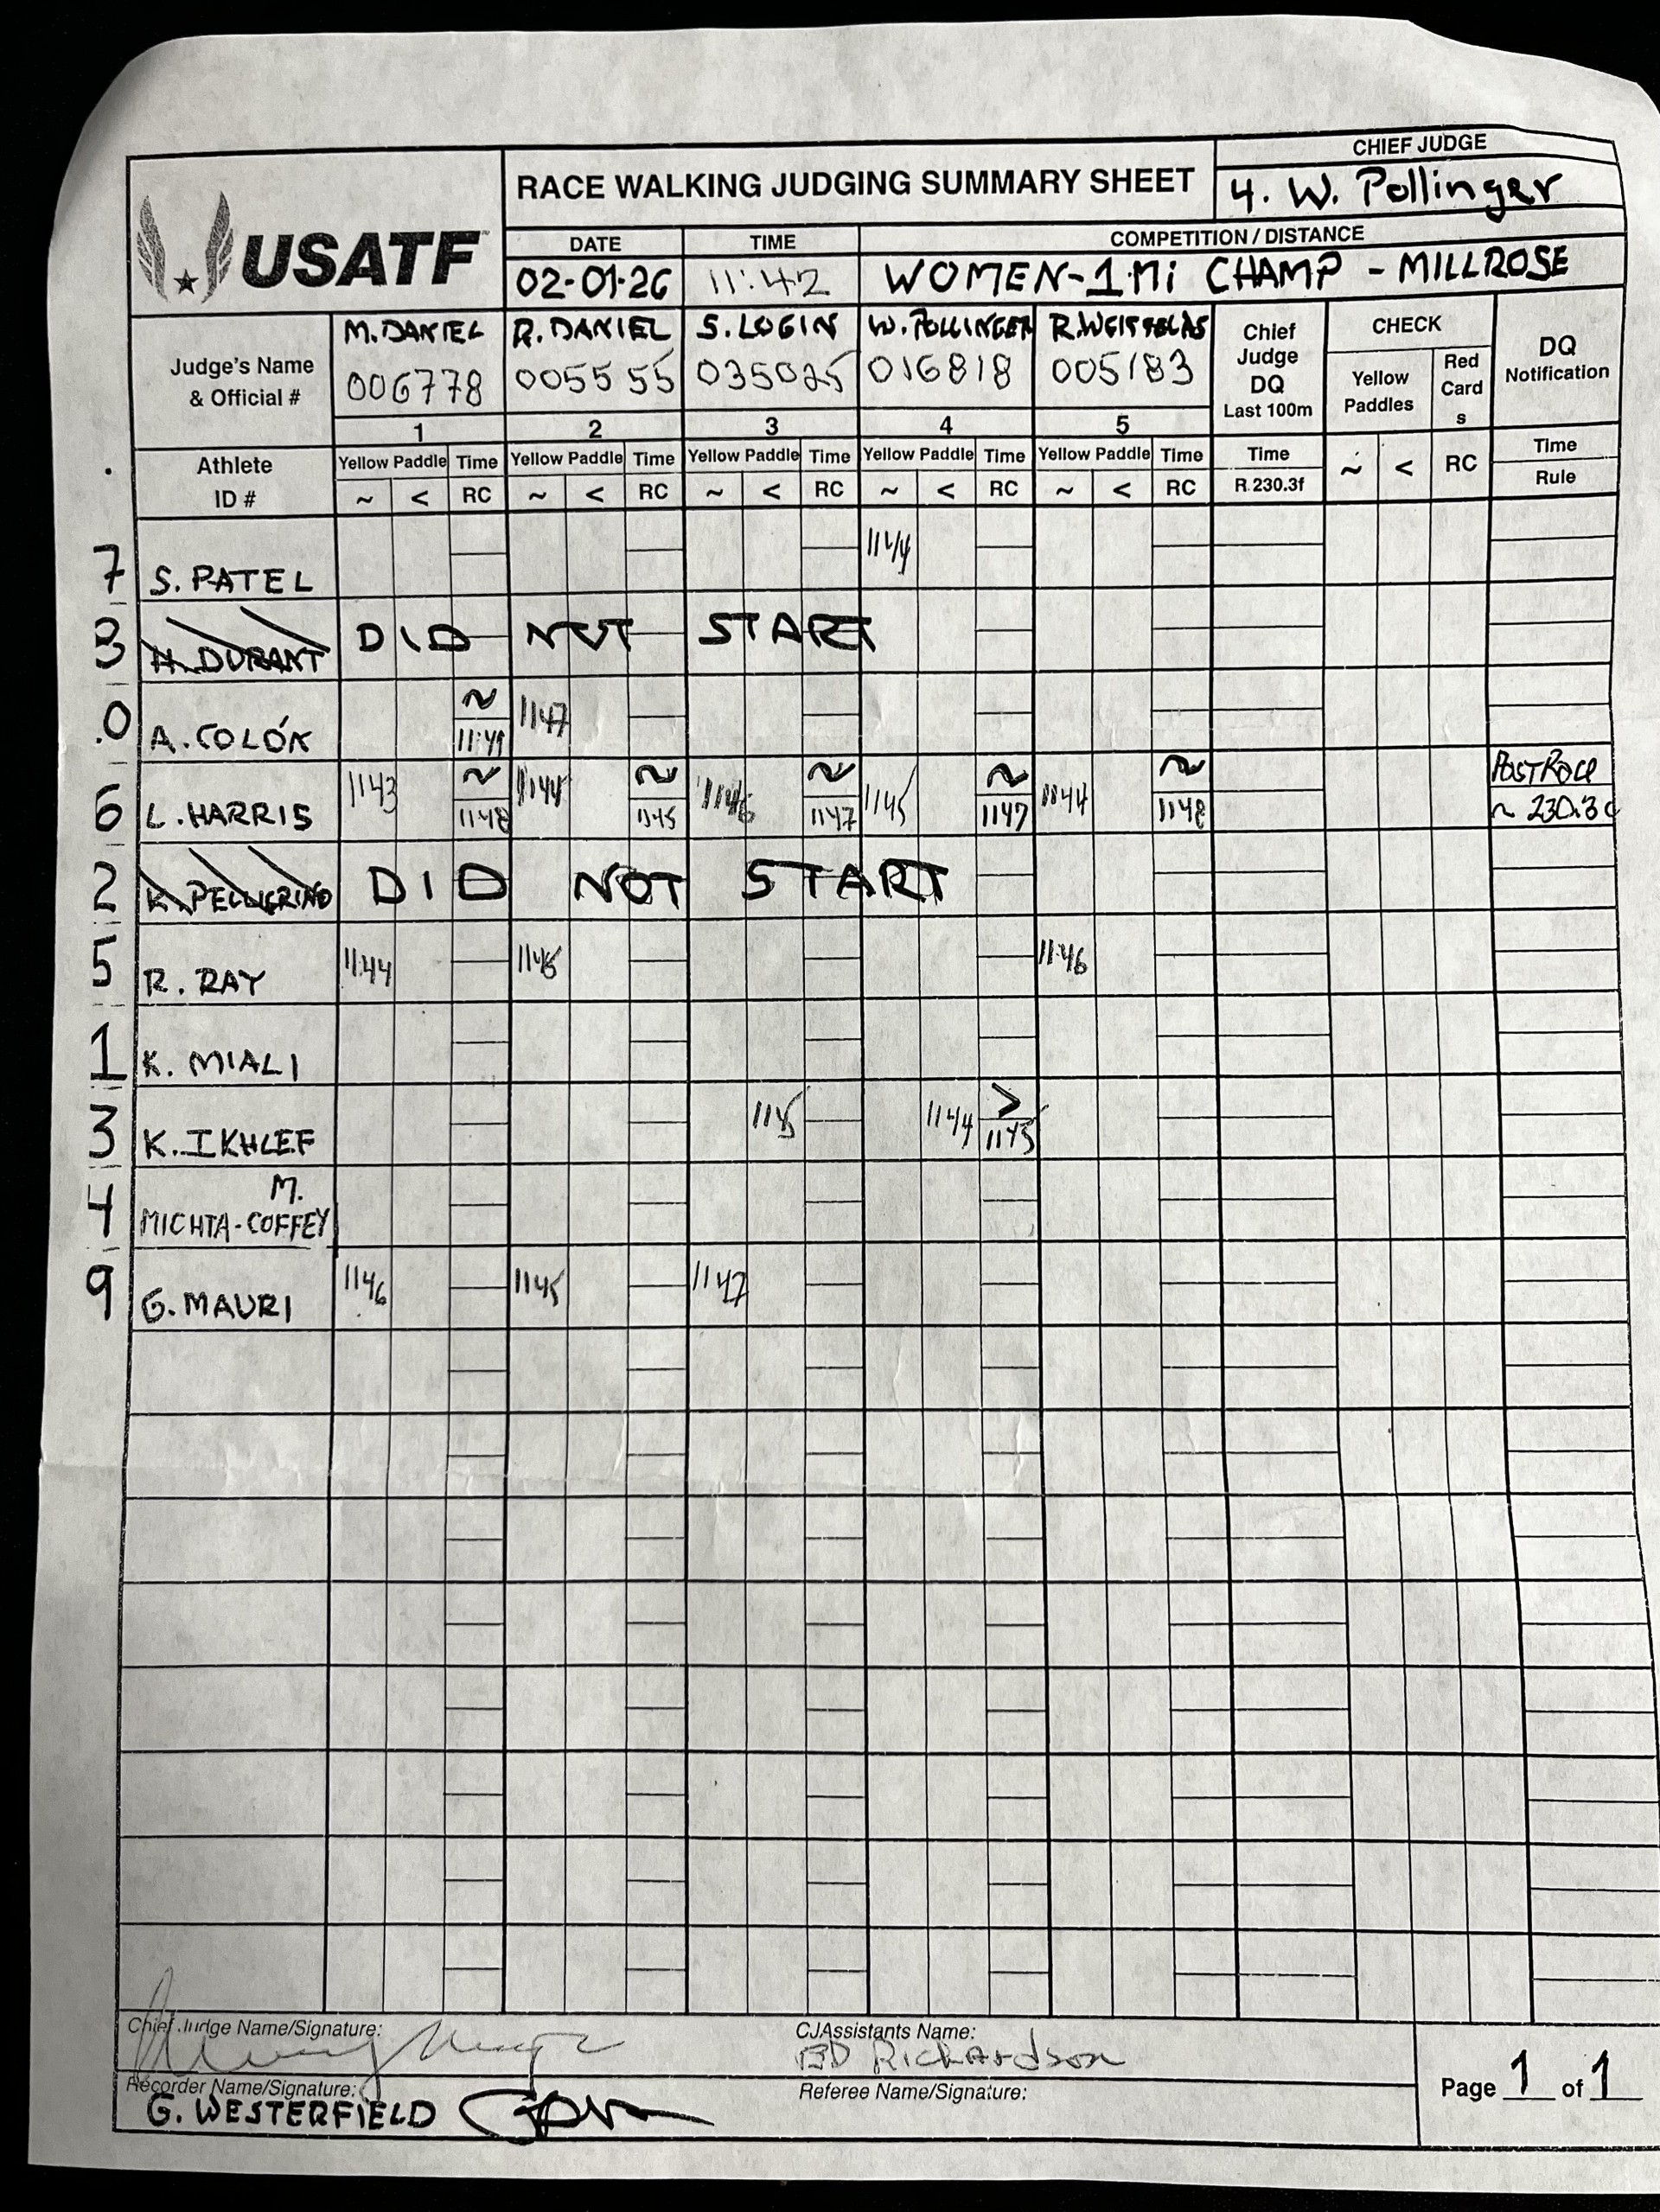 CHIEF JUDGE
RACE WALKING JUDGING SUMMARY SHEET
4. W. Pollinger
USATF
DATE TIME COMPETITION / DISTANCE
02-01-26 11:42 WOMEN-1 Mi CHAMP - MILLROSE
Judge's Name & Official #
M. DANIEL R. DANIEL S. LOGIN W. POLLINGER
006778 005555 035025 016818 005183
1 2 3 4 5
Chief Judge DQ Last 100m
CHECK
Yellow Paddles
Red Cards
DQ Notification
Athlete ID #
Yellow Paddle Time Yellow Paddle Time Yellow Paddle Time Yellow Paddle Time Yellow Paddle Time Time Time
~ < RC ~ < RC ~ < RC ~ < RC ~ < RC R 230.3f ~ < RC Rule
7 S. PATEL 1144
H. DURANT DID NOT START
A. COLÓN ~ 11:49 1147
6 L. HARRIS 1143 ~ 1148 1144 ~ 1145 1146 ~ 1147 1145 ~ 1147 1144 ~ 1148 POST RACE ~ 230.3c
2 K. PELLIGRINO DID NOT START
5 R. RAY 11:44 1145 11:46
1 K. MIALI
3 K. IKHLEF 1144 > 1145
4 M. MICHTA-COFFEY
9 G. MAURI 1146 1145 1147
Chief Judge Name/Signature:
CJAssistants Name:
ED Richardson
Recorder Name/Signature:
G. WESTERFIELD
Referee Name/Signature:
Page 1 of 1